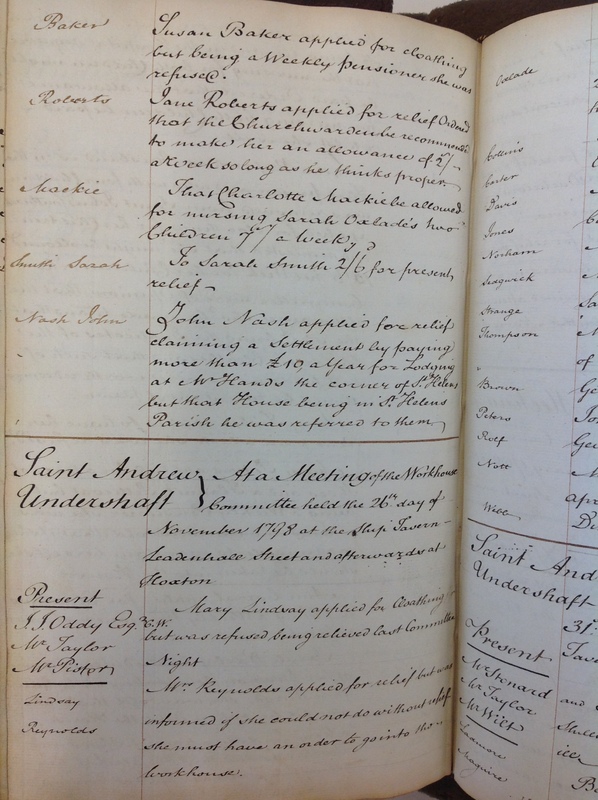 Baker
Susan Baker applied for cloathing
but being a Weekly Pensioner she was
refused.
Roberts
Jane Roberts applied for relief Ordered
that the Churchwarden be recommended
to make her an allowance of 2/-
a Week so long as he thinks proper
Mackie
That Charlotte Mackie be allowed
for nursing Sarah Oxlade's two
Children 7/ a Week
Smith Sarah
To Sarah Smith 2/6 for present
relief
Nash John
John Nash applied for relief
claiming a Settlement by paying
more than £10 a Year for Lodging
at Mr Hands the corner of St Helens
but that House being in St Helens
Parish he was referred to them
Saint Andrew
Undershaft
At a Meeting of the Workhouse
Committee held the 26th day of
November 1798 at the Ship Tavern
Leadenhall Street and afterwards at
Hoxton
Present
J. J. Oddy Esq. C.W.
Mr Taylor
Mr Pistor
Lindsay
Mary Lindsay applied for Cloathing
but was refused, being relieved last Committee
Night
Reynolds
Mrs Reynolds applied for relief but was
informed if she could not do without relief
she must have an order to go into the
Workhouse.
Oxlade
Collins
Carter
Davis
Jones
Norham
Sedgwick
Strange
Thompson
of
Brown
Peters
Rolf
Nott
Webb
Saint And
Undershaft
31st
Present
Mr Stenard
Mr Taylor
Mr Wilt
and
Maguire